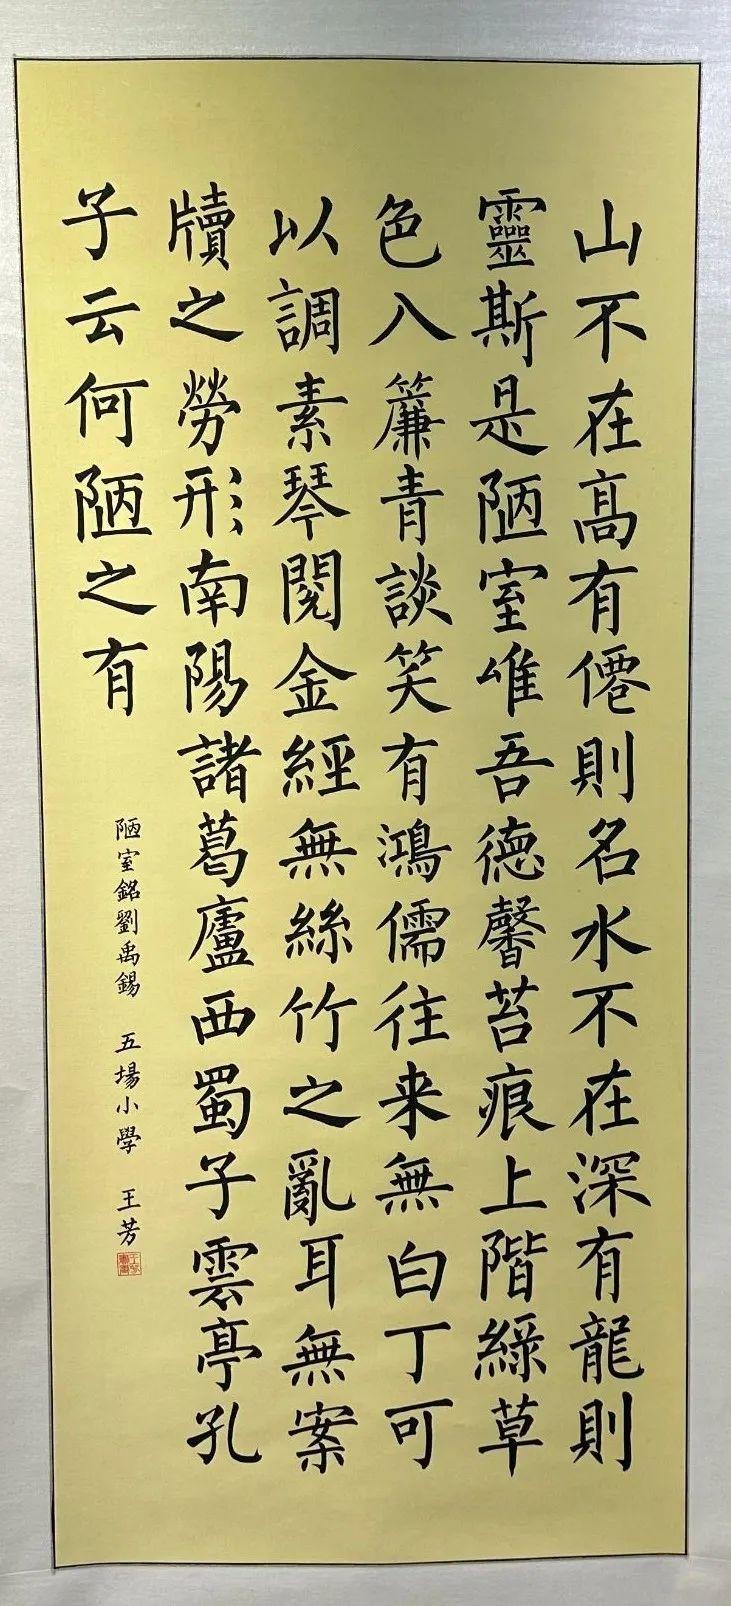 山不在高有僊則名水不在深有龍則
靈斯是陋室唯吾德馨苔痕上階綠草
色入簾青談笑有鴻儒往来無白丁可
以調素琴閱金經無絲竹之亂耳無案
牘之勞形南陽諸葛廬西蜀子雲亭孔
子云何陋之有
陋室銘劉禹錫 五場小學 王芳